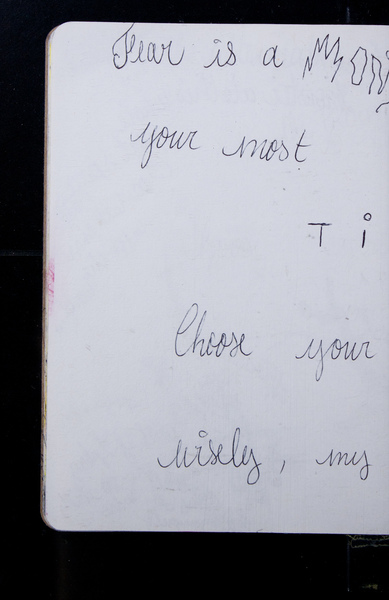 Fear is a MON
your most
Ti
Choose your
wisely, my